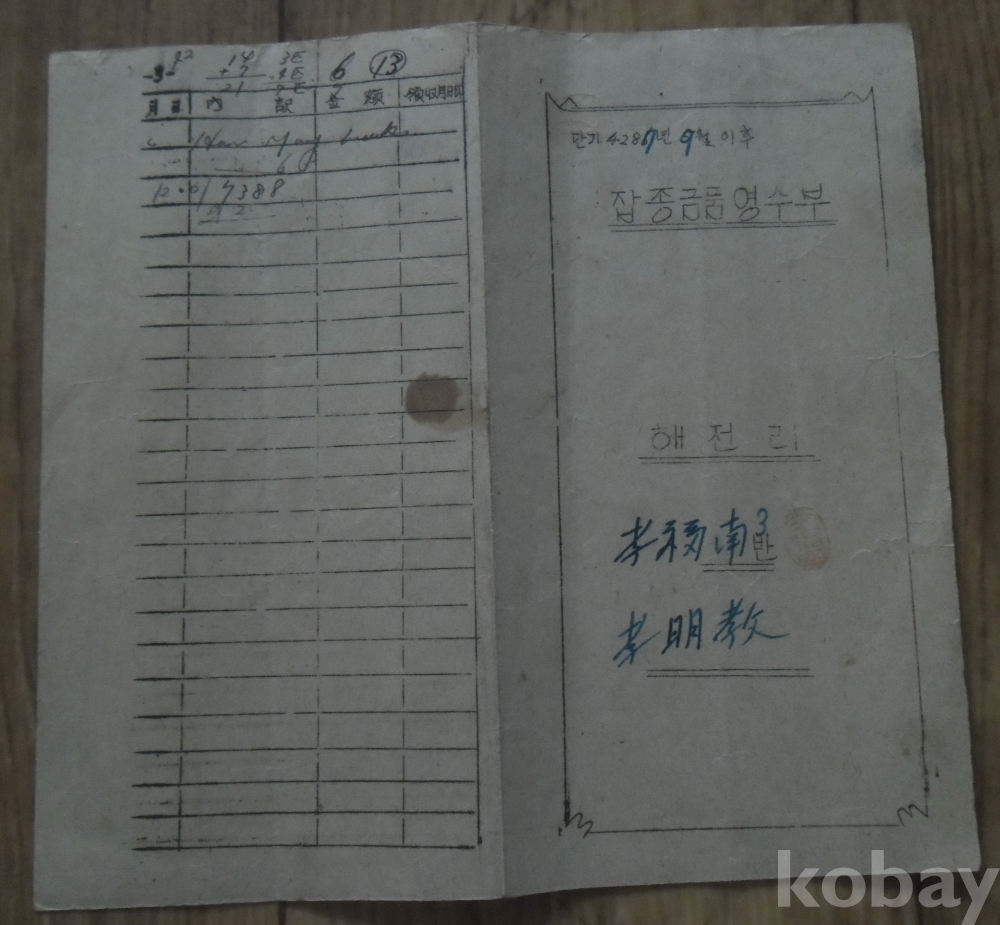 14
+7
21
6 ⑬
月 日 內 訳 金 額 領收月日印
How Many books
6
7388
단기 4287년 9월 이후
잡종금품영수부
해전리
李福南 3반
李明教
kobay